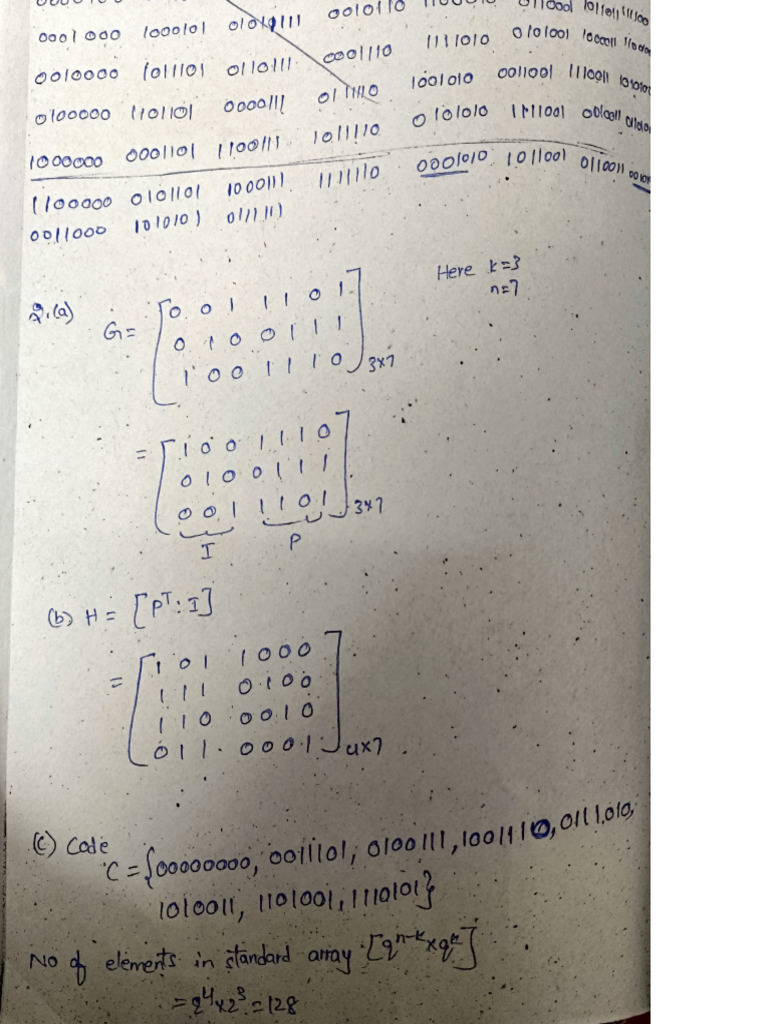 0001000 1000101 0101111 0010110
0010000 1011101 0110111 0001110 1111010 0101001 100011
0100000 1101101 0000111 0111110 1001010 0011001 1110011
1000000 0001101 1100111 1011110 0101010 1111001 0010011
1100000 0101101 1000111 1111110 0001010 1011001 0110011
0011000 1010101 0111111
2.(a) G = [0 0 1 1 1 0 1 Here k=3
0 1 0 0 1 1 1 n=7
1 0 0 1 1 1 0] 3×7
= [1 0 0 1 1 1 0
0 1 0 0 1 1 1
0 0 1 1 1 0 1] 3×7
I P
(b) H = [Pᵀ : I]
= [1 0 1 1 0 0 0
1 1 1 0 1 0 0
1 1 0 0 0 1 0
0 1 1 0 0 0 1] 4×7
(c) Code
C = {00000000, 0011101, 0100111, 1001110, 0111010,
1010011, 1101001, 1110101}
No of elements in standard array [qⁿ⁻ᵏ × qᵏ]
= 2⁴ × 2³ = 128